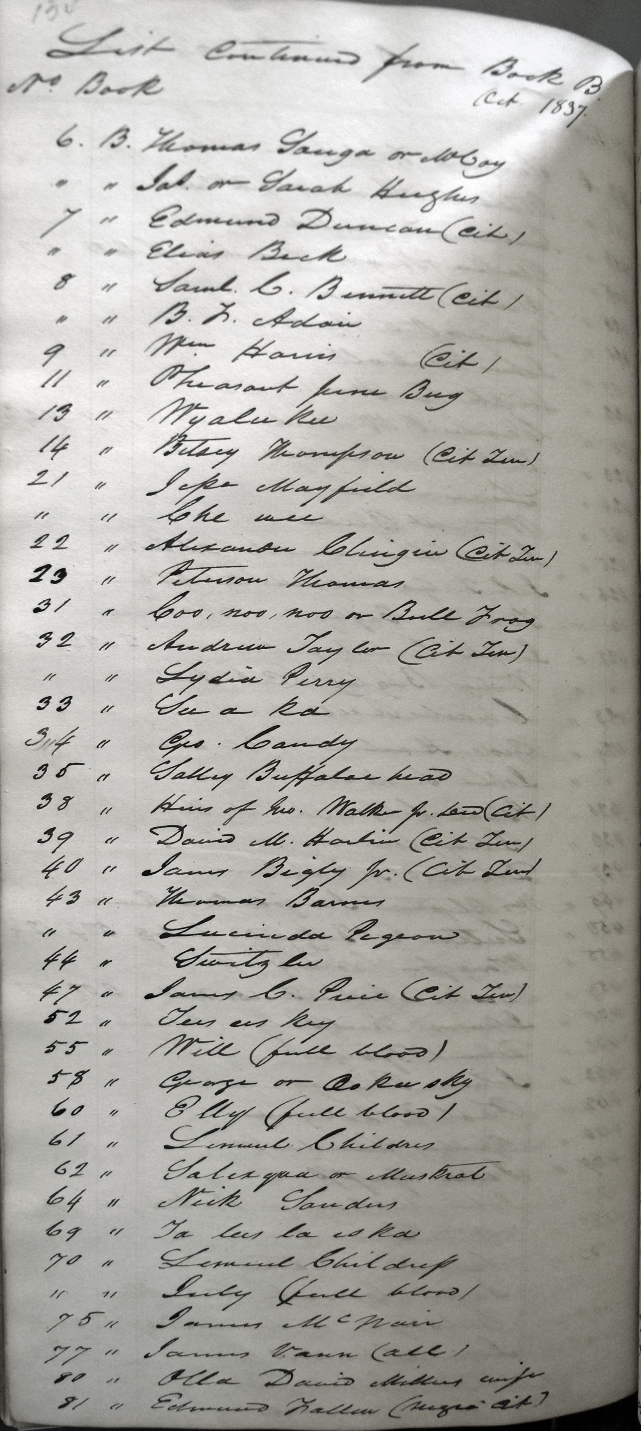 132
List Continued from Book B
No. Book Oct. 1837.
6. B. Thomas Sanga or McCoy
" " Jas. or Sarah Hughs
7 " Edmund Duncan (Cit)
" " Elias Beck
8 " Saml. C. Bennett (Cit)
" " B. F. Adair
9 " Wm Harris (Cit)
11 " Pheasant June Bug
13 " Wyalu kee
14 " Betsey Thompson (Cit Ten)
21 " Jesse Mayfield
" " Che wee
22 " Alexander Clingin (Cit Ten)
23 " Peterson Thomas
31 " Coo, noo, noo or Bull Frog
32 " Andrew Taylor (Cit Ten)
" " Lydia Perry
33 " Su a ka
34 " Geo. Candy
35 " Salley Buffaloe head
38 " Heirs of Jno. Walker Jr. (Cit)
39 " David M. Harlin (Cit Ten)
40 " James Bigby Jr. (Cit Ten)
43 " Thomas Barnes
" " Lucinda Pigeon
44 " Switzler
47 " James C. Price (Cit Ten)
52 " Tees ees key
55 " Will (full blood)
58 " George or
60 " Elly (full blood)
61 " Lemuel Childres
62 " Salezqua or Muskrat
64 " Nick Sanders
69 " Ta lees la es ka
70 " Lemuel Childress
" " July (full blood)
75 " James McNair
77 " James Vann (all)
80 " Olla David Millers wife
81 " Edmund Fallen (negro Cit)